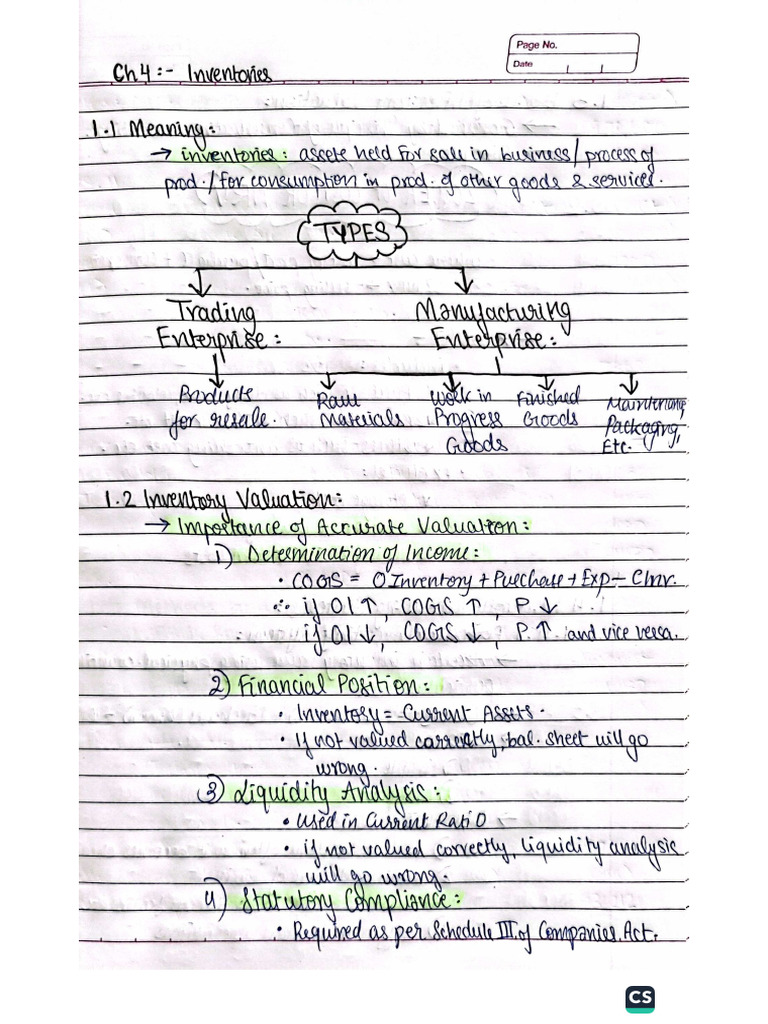 Page No.
Date
Ch 4 :- Inventories
1.1 Meaning:
→ inventories: assets held for sale in business/process of
prod./for consumption in prod. of other goods & services.
TYPES
Trading Manufacturing
Enterprise: Enterprise:
Products Raw Work in Finished Maintenance,
for resale. Materials Progress Goods Packaging,
Goods Etc.
1.2 Inventory Valuation:
→ Importance of Accurate Valuation:
1) Determination of Income:
• COGS = O Inventory + Purchase + Exp - CInv.
∴ if OI ↑, COGS ↑, P. ↓
if OI ↓, COGS ↓, P. ↑ and vice versa.
2) Financial Position:
• Inventory = Current Assets.
• If not valued correctly, bal. sheet will go
wrong.
3) Liquidity Analysis:
• Used in Current Ratio
• if not valued correctly, liquidity analysis
will go wrong.
4) Statutory Compliance:
• Required as per Schedule III of Companies Act.
CS